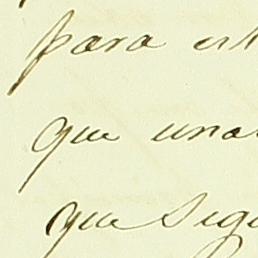 para est
que una
que sigu